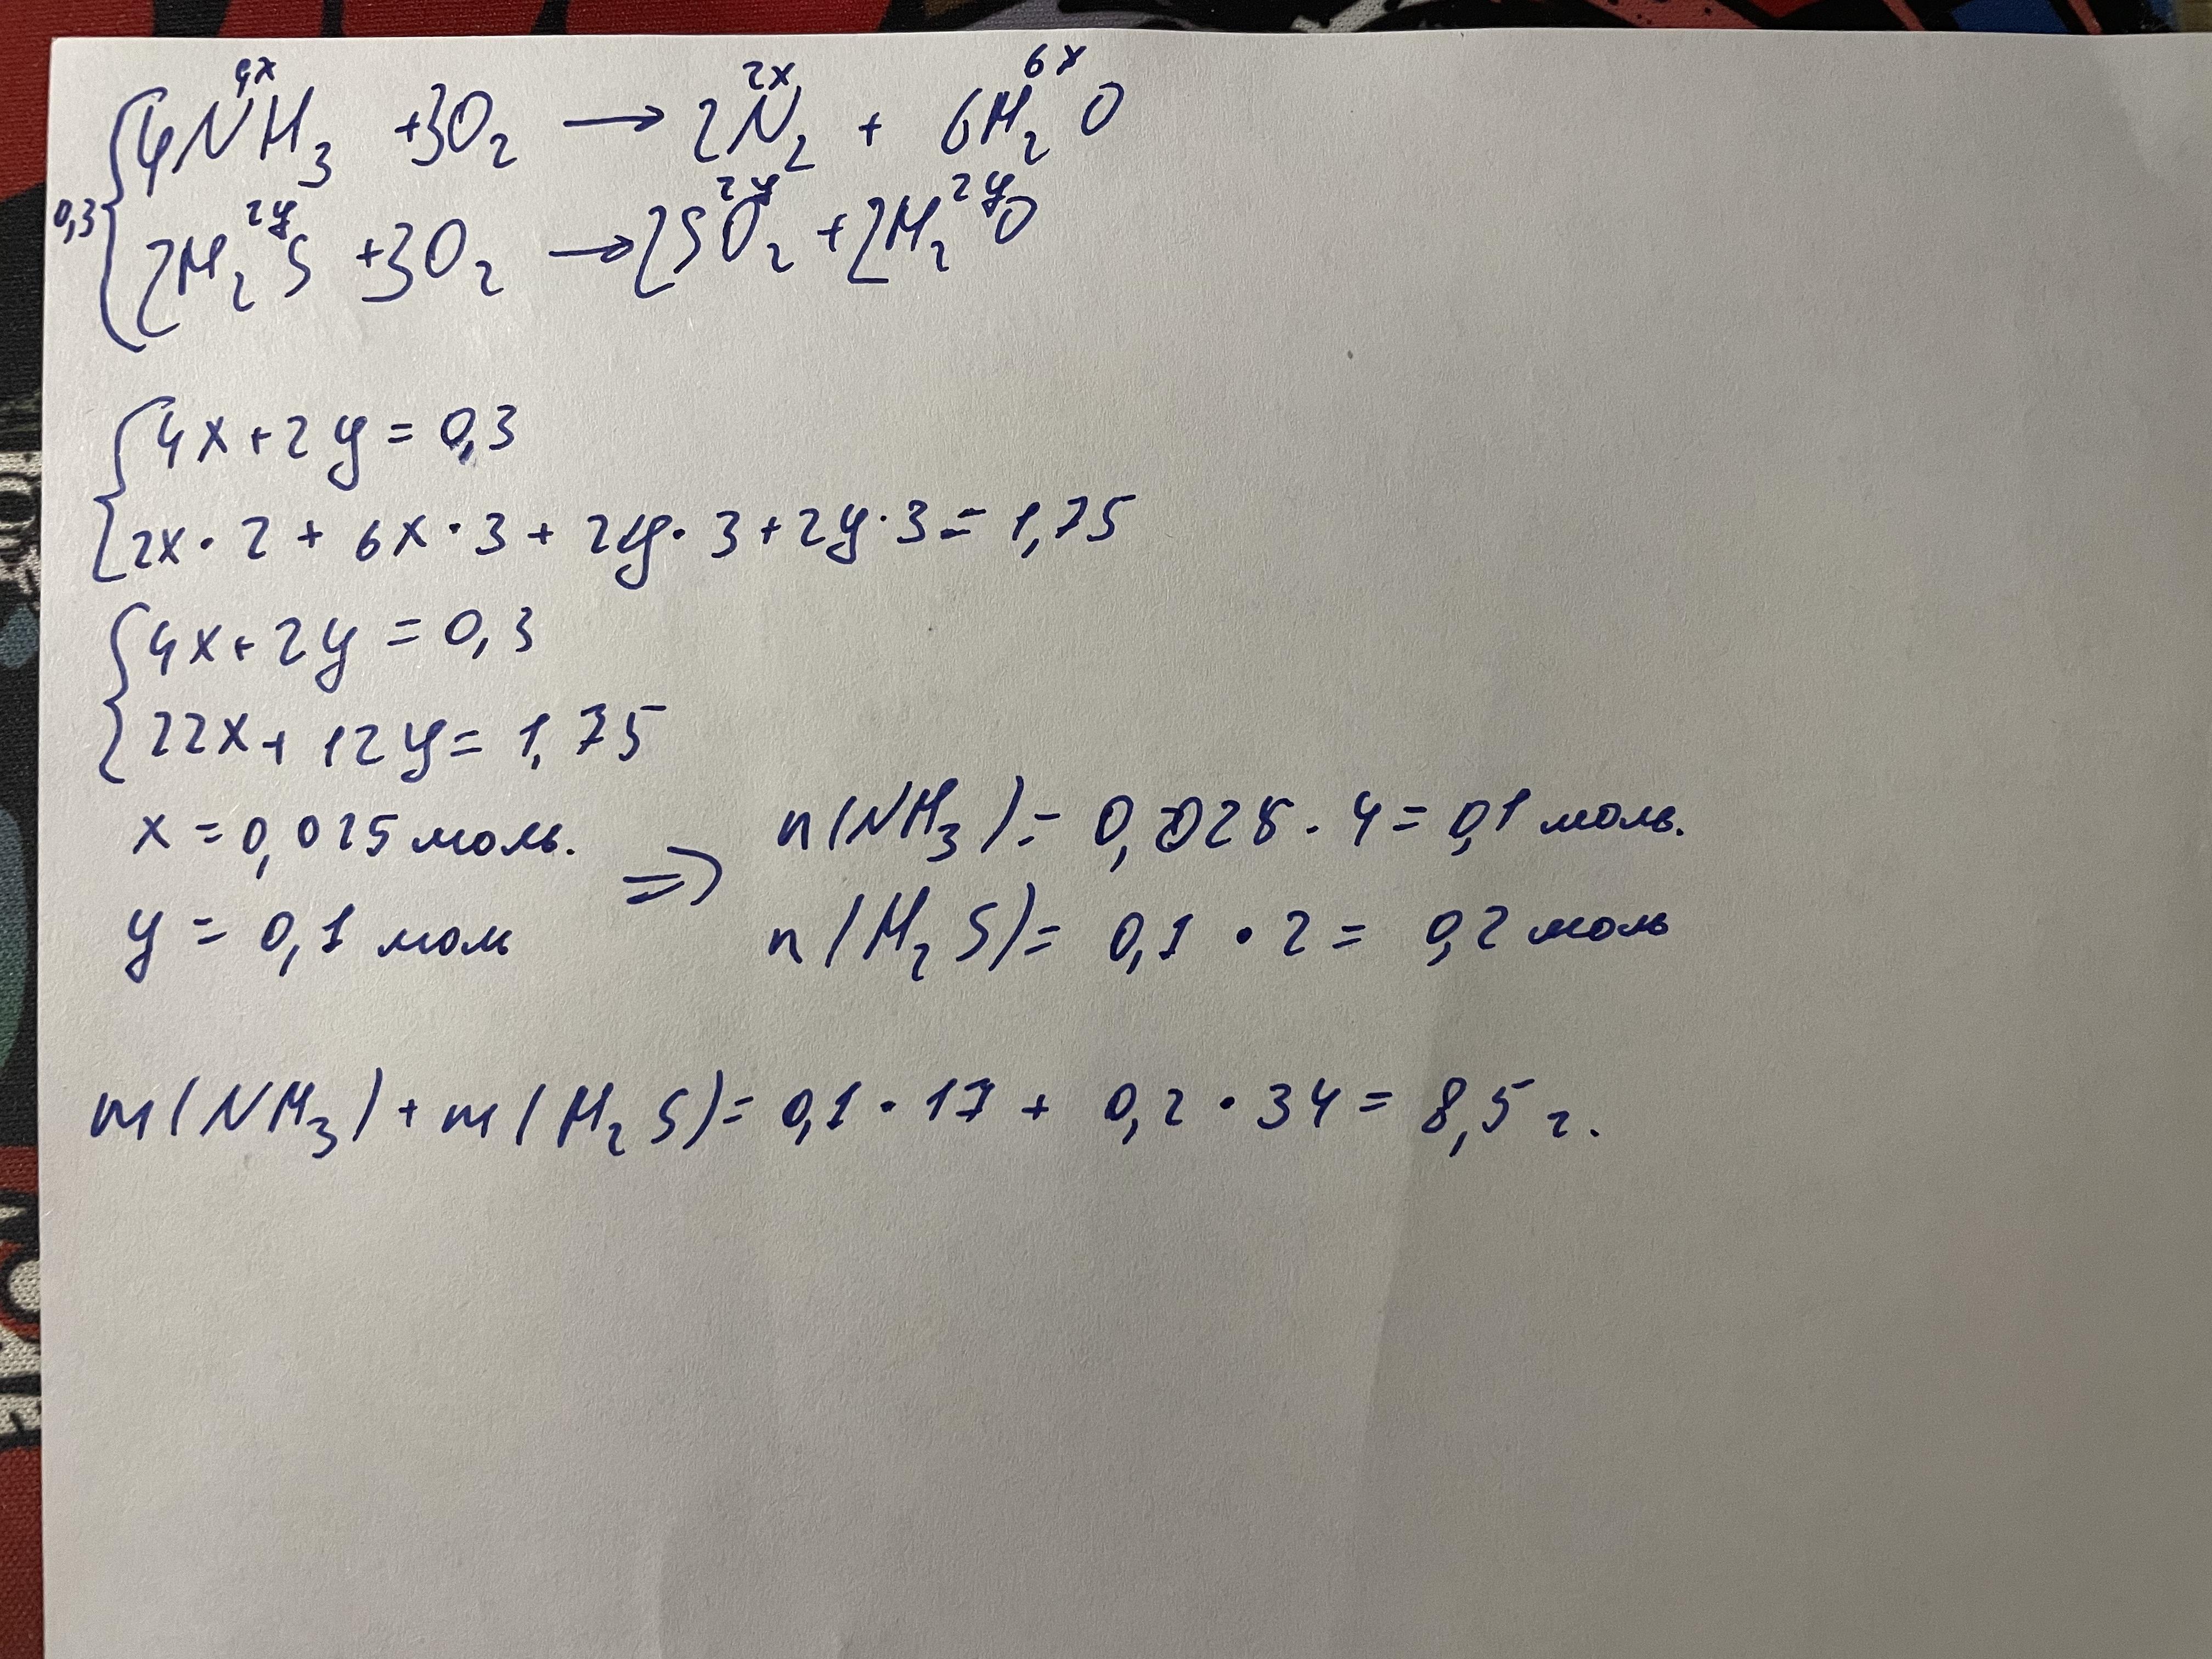 4x 2x 6x
4NH₃ +3O₂ → 2N₂ + 6H₂O
2y 2y 2y
0,3
2H₂S +3O₂ → 2SO₂ + 2H₂O
4x+2y = 0,3
2x·2 + 6x·3 + 2y·3 + 2y·3 = 1,75
4x+2y = 0,3
22x+ 12y = 1,75
x = 0,025 моль. ⇒ n(NH₃) = 0,025·4 = 0,1 моль.
y = 0,1 моль n(H₂S) = 0,1·2 = 0,2 моль
m(NH₃) + m(H₂S) = 0,1·17 + 0,2·34 = 8,5 г.